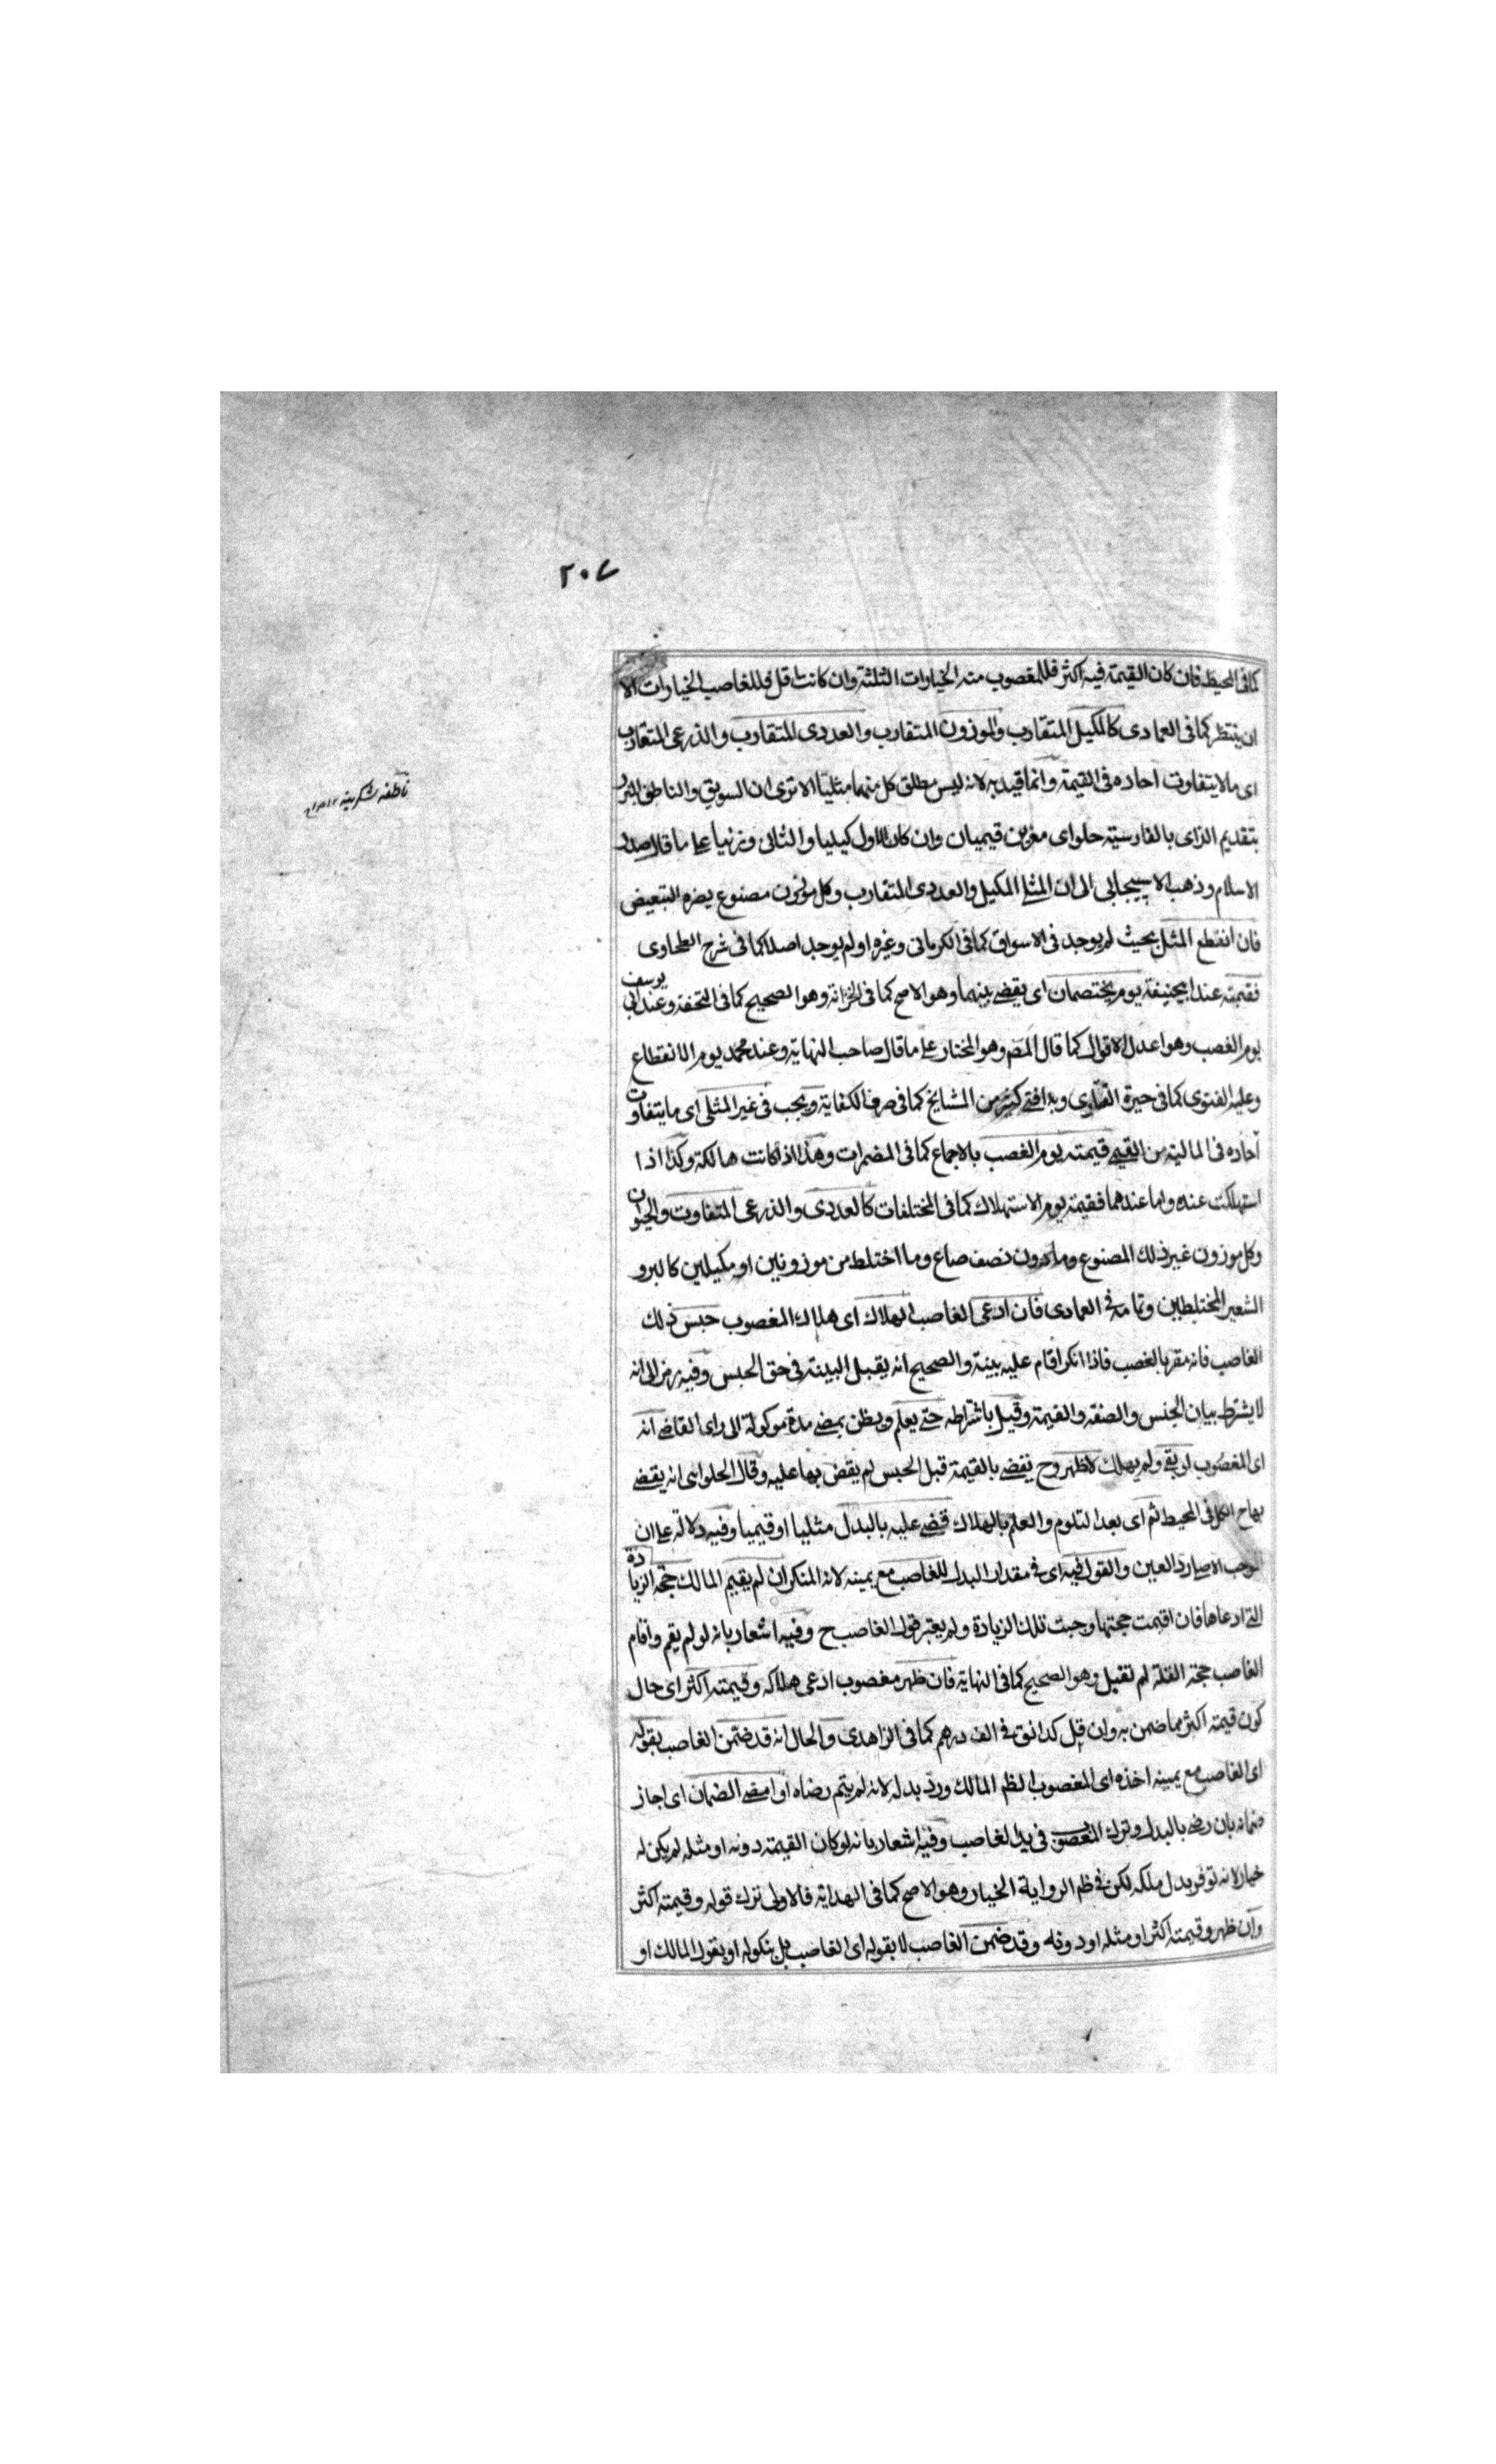 ٢٠٧
كما في المحيط فان كان القيمة فيه اكثر فللمغصوب منه الخيارات الثلثة وان كانت اقل فللغاصب الخيارات الا
ان ينتظر كما في العمادى كالمكيل المتقارب والموزون المتقارب والعددى المتقارب والذرعى المتقارب
اى ما لا يتفاوت احاده في القيمة وانما قيد به لانه ليس مطلق كل منهما مثليا الا ترى ان السويق والناطف المبزر
بتقديم الزاى بالفارسية حلواى مغزين قيميان وان كان الاول كيليا والثانى وزنيا على ما قال صدر
الاسلام وذهب الاسبيجابى الى ان المثلى المكيل والعددى المتقارب وكل موزون مصنوع يضره التبعيض
فان انقطع المثل بحيث لم يوجد في الاسواق كما في الكرمانى وغيره او لم يوجد اصلا كما في شرح الطحاوى
فقيمته عند ابيحنيفة يوم يختصمان اى يقضى بينهما وهو الاصح كما في الخزانة وهو الصحيح كما في التحفة وعند ابى يوسف
يوم الغصب وهو اعدل الاقوال كما قال المصـ وهو المختار على ما قال صاحب النهاية وعند محمد يوم الانقطاع
وعليه الفتوى كما في حيرة الفتاوى وبه افتى كثير من المشايخ كما في صرف الكفاية ويجب في غير المثلى اى ما يتفاوت
آحاده في المالية من القيمى قيمته يوم الغصب بالاجماع كما في المضمرات وهذا اذا كانت هالكة وكذا اذا
استهلكت عنده واما عندهما فقيمته يوم الاستهلاك كما في المختلفات كالعددى والذرعى المتفاوت والحيوان
وكل موزون غير ذلك المصنوع وما دون نصف صاع وما اختلط من موزونين او مكيلين كالبر و
الشعير المختلطين وتمامه في العمادى فان ادعى الغاصب الهلاك اى هلاك المغصوب حبس ذلك
الغاصب فانه مقر بالغصب فاذا انكر اقام عليه بينة والصحيح انه يقبل البينة في حق الحبس وفيه رمز الى انه
لا يشترط بيان الجنس والصفة والقيمة وقيل باشتراطه حتى يعلم ويظن بمضى مدة موكولة الى راى القاضى انه
اى المغصوب لو بقى ولم يهلك لاظهر وح يقضى بالقيمة قبل الحبس لم يقض بها عليه وقال الحلوانى انه يقضى
بها ح الكل في المحيط ثم اى بعد التلوم والعلم بالهلاك قضى عليه بالبدل مثليا او قيميا وفيه دلالة على ان
الموجب الاصلى رد العين والقول فيه اى في مقدار البدل للغاصب مع يمينه لانه المنكر ان لم يقيم المالك حجة الزيادة
التى ادعاها فان اقيمت حجتها وجبت تلك الزيادة ولم يعتبر قول الغاصب ح وفيه اشعار بانه لو لم يقم واقام
الغاصب حجة القلة لم تقبل وهو الصحيح كما في النهاية فان ظهر مغصوب ادعى هلاكه وقيمته اكثر اى حال
كون قيمته اكثر مما ضمن به وان قل كدانق في الف درهم كما في الزاهدى والحال انه قد ضمن الغاصب بقوله
اى الغاصب مع يمينه اخذه اى المغصوب الظم المالك ورد بدله لانه لم يتم رضاه او امضى الضمان اى اجاز
ضمانه بان رضى بالبدل وترك المغصوب في يد الغاصب وفيه اشعار بانه لو كان القيمة دونه او مثله لم يكن له
خيار لانه توفر بدل ملكه لكن في ظم الرواية الخيار وهو الاصح كما في الهداية فالاولى ترك قوله وقيمته اكثر
وان ظهر وقيمته اكثر او مثله او دونه وقد ضمن الغاصب لا بقوله اى الغاصب بل بنكوله او بقول المالك او